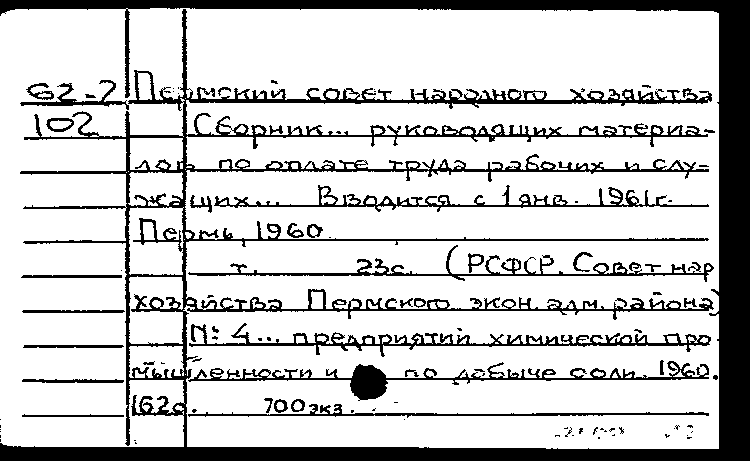 62-7 Пермский совет народного хозяйства
102 Сборник... руководящих материа-
лов по оплате труда рабочих и слу-
жащих... Вводится с 1 янв. 1961г.
Пермь, 1960
т. 23с. (РСФСР. Совет нар
хозяйства Пермского экон. адм. района)
№ 4... предприятий химической про
мышленности и по добыче соли. 1960.
162с. 700 экз.